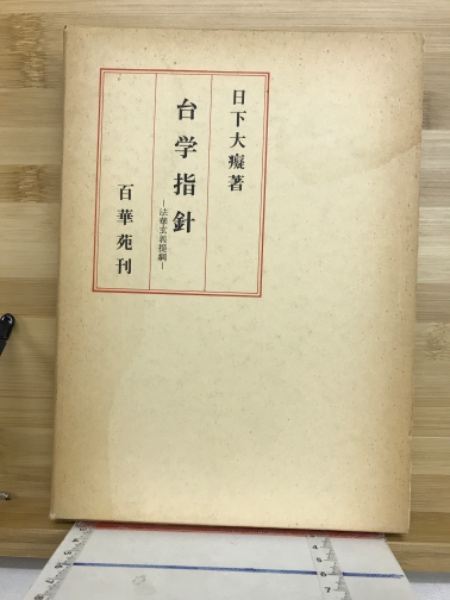 日下大癡著
台学指針
―法華玄義提綱―
百華苑刊
4
5
6
7